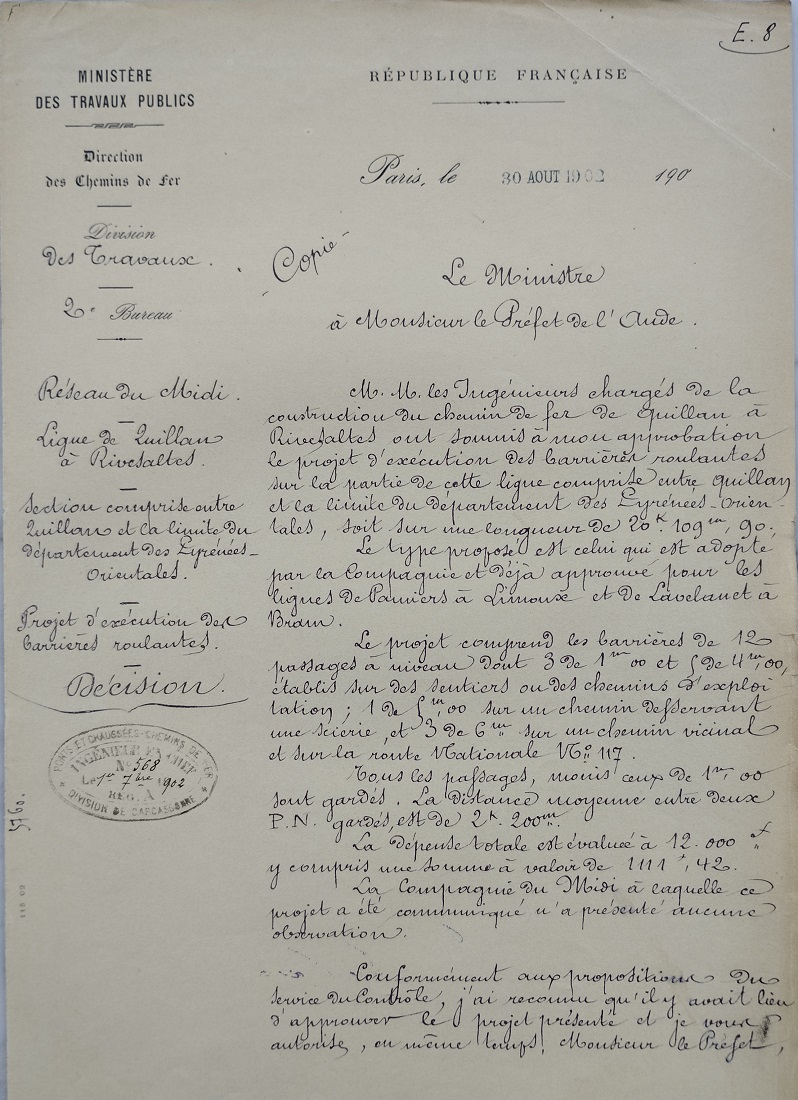 E. 8
MINISTÈRE
DES TRAVAUX PUBLICS
Direction
des Chemins de Fer
Division
des Travaux.
2e Bureau
Réseau du Midi.
Ligne de Quillan
à Rivesaltes.
Section comprise entre
Quillan et la limite du
département des Pyrénées-
Orientales.
Projet d'exécution des
barrières roulantes.
Décision.
PONTS ET CHAUSSÉES-CHEMINS DE FER
INGÉNIEUR EN CHEF
No 568
Le 1er 7bre 1902
DIVISION DE CARCASSONNE
RÉPUBLIQUE FRANÇAISE
Paris, le 30 AOUT 1902 190
Copie
Le Ministre
à Monsieur le Préfet de l'Aude.
M. M. les Ingénieurs chargés de la
construction du chemin de fer de Quillan à
Rivesaltes ont soumis à mon approbation
le projet d'exécution des barrières roulantes
sur la partie de cette ligne comprise entre Quillan
et la limite du département des Pyrénées-Orien-
tales, soit sur une longueur de 20k 109m, 90.
Le type proposé est celui qui est adopté
par la Compagnie et déjà approuvé pour les
lignes de Pamiers à Limoux et de Lavelanet à
Bram.
Le projet comprend les barrières de 12
passages à niveau dont 3 de 1m 00 et 5 de 4m,00,
établis sur des sentiers ou des chemins d'exploi
tation; 1 de 5m,00 sur un chemin desservant
une scierie, et 3 de 6m sur un chemin vicinal
et sur la route Nationale No 117.
Tous les passages, moins ceux de 1m, 00
sont gardés. La distance moyenne entre deux
P.N. gardés, est de 2k. 200m.
La dépense totale est évaluée à 12.000f
y compris une somme à valoir de 1111f, 42.
La Compagnie du Midi à laquelle ce
projet a été communiqué n'a présenté aucune
observation.
Conformément aux propositions du
service du Contrôle, j'ai reconnu qu'il y avait lieu
d'approuver le projet présenté et je vous
autorise, en même temps, Monsieur le Préfet,